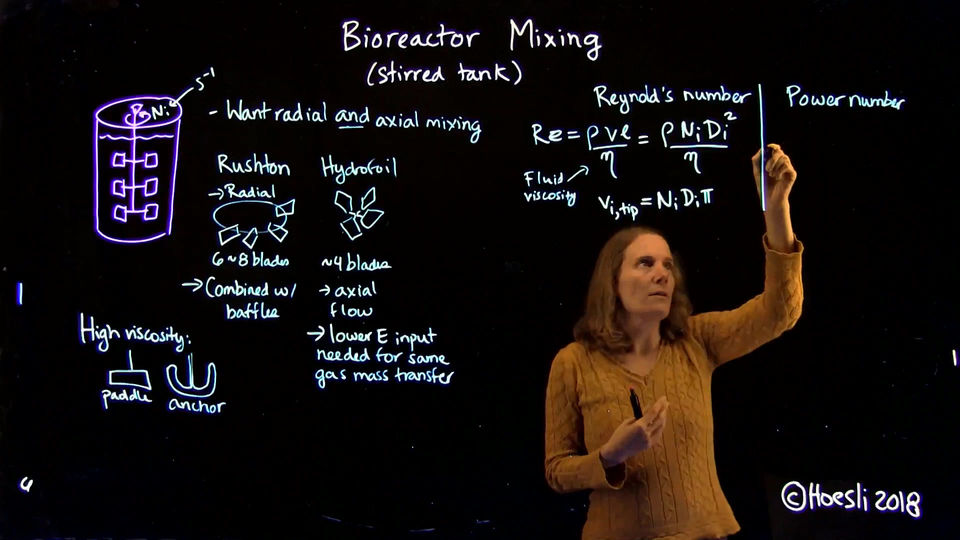 Bioreactor Mixing
(stirred tank)
s⁻¹
Ni
- Want radial and axial mixing
Rushton
→ Radial
6~8 blades
→ Combined w/
baffles
Hydrofoil
~4 blades
→ axial
flow
→ lower E input
needed for same
gas mass transfer
High viscosity:
paddle
anchor
Reynold's number
Re = ρvl/η = ρNiDi²/η
Fluid
viscosity
vi,tip = NiDiπ
Power number
©Hoesli 2018